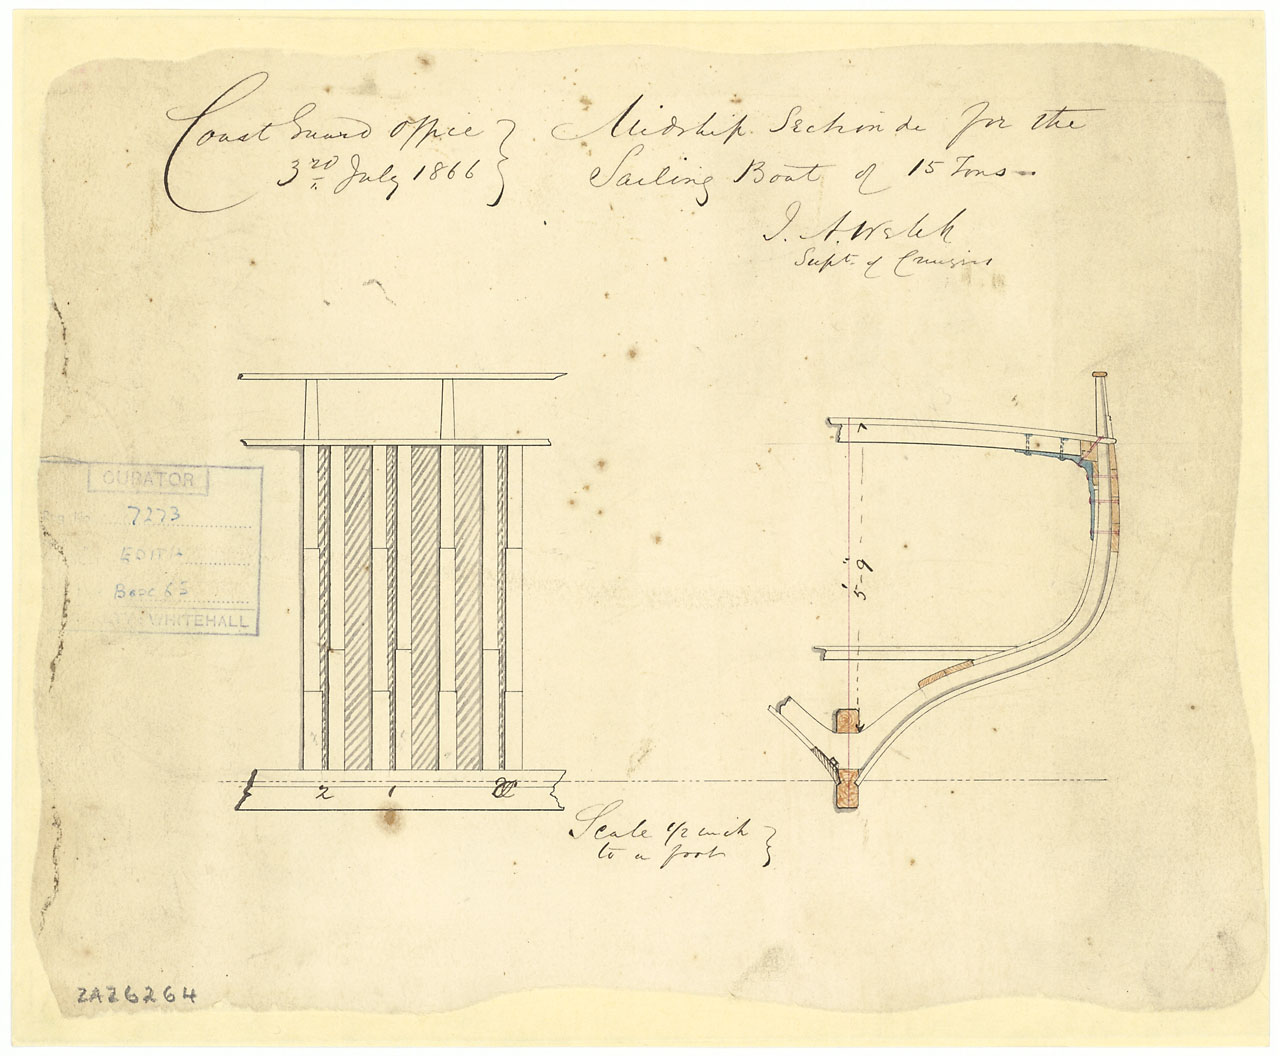 Coast Guard Office }
3rd July 1866 }
Midship Section &c for the
Sailing Boat of 15 Tons
J. A. Welch
Supt. of Cruizers
5'-9"
CURATOR
7273
EDITH
Box 65
WHITEHALL
2 1
Scale 1/2 inch }
to a foot }
ZAZ6264